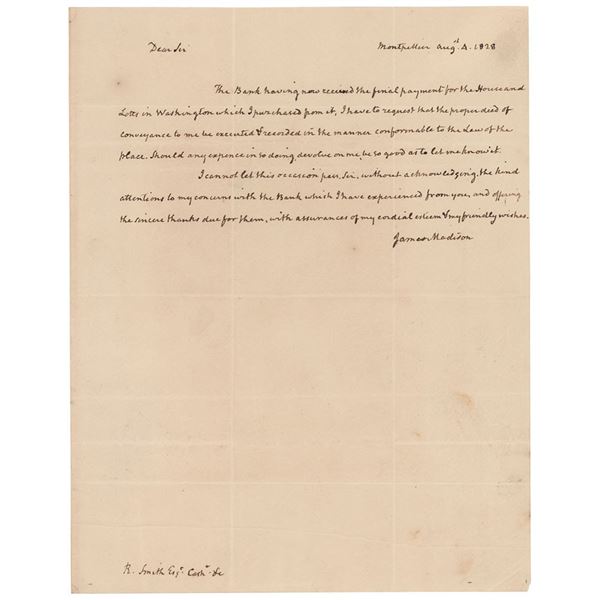 Dear Sir Montpellier Augst. 4. 1828
The Bank having now received the final payment for the House and
Lotts in Washington which I purchased from it, I have to request that the proper deed of
conveyance to me be executed & recorded in the manner conformable to the Law of the
place. Should any expence in so doing, devolve on me, be so good as to let me know it.
I cannot let this occasion pass, Sir, without acknowledging, the kind
attentions to my concerns with the Bank which I have experienced from you, and offering
the sincere thanks due for them, with assurances of my cordial esteem & my friendly wishes.
James Madison
R. Smith Esqr. Cashr. &c